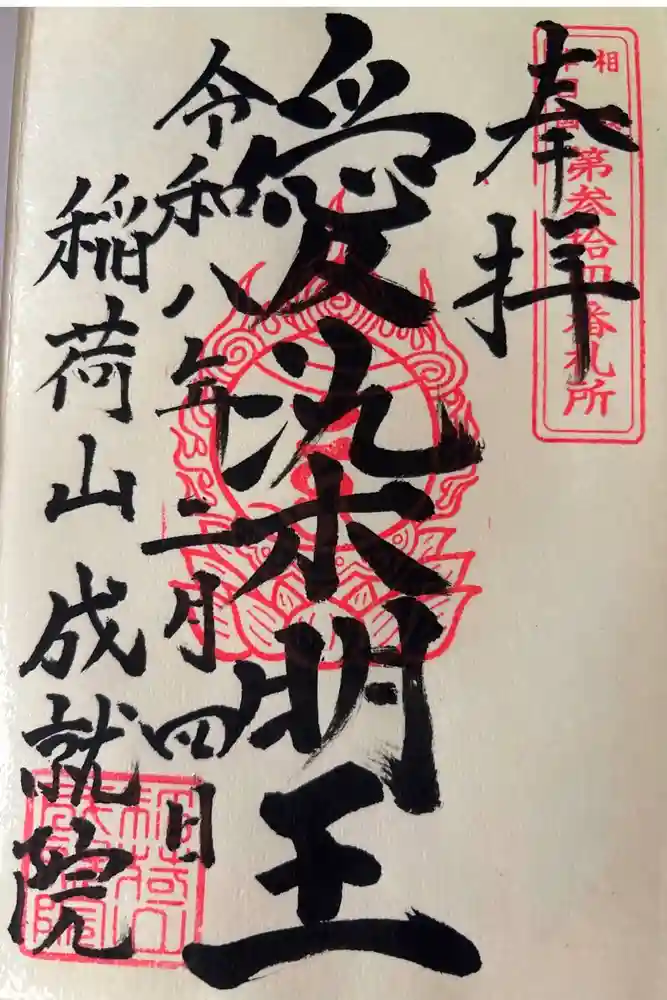 第参拾四番札所
奉拝
愛染明王
令和八年二月四日
稲荷山 成就院